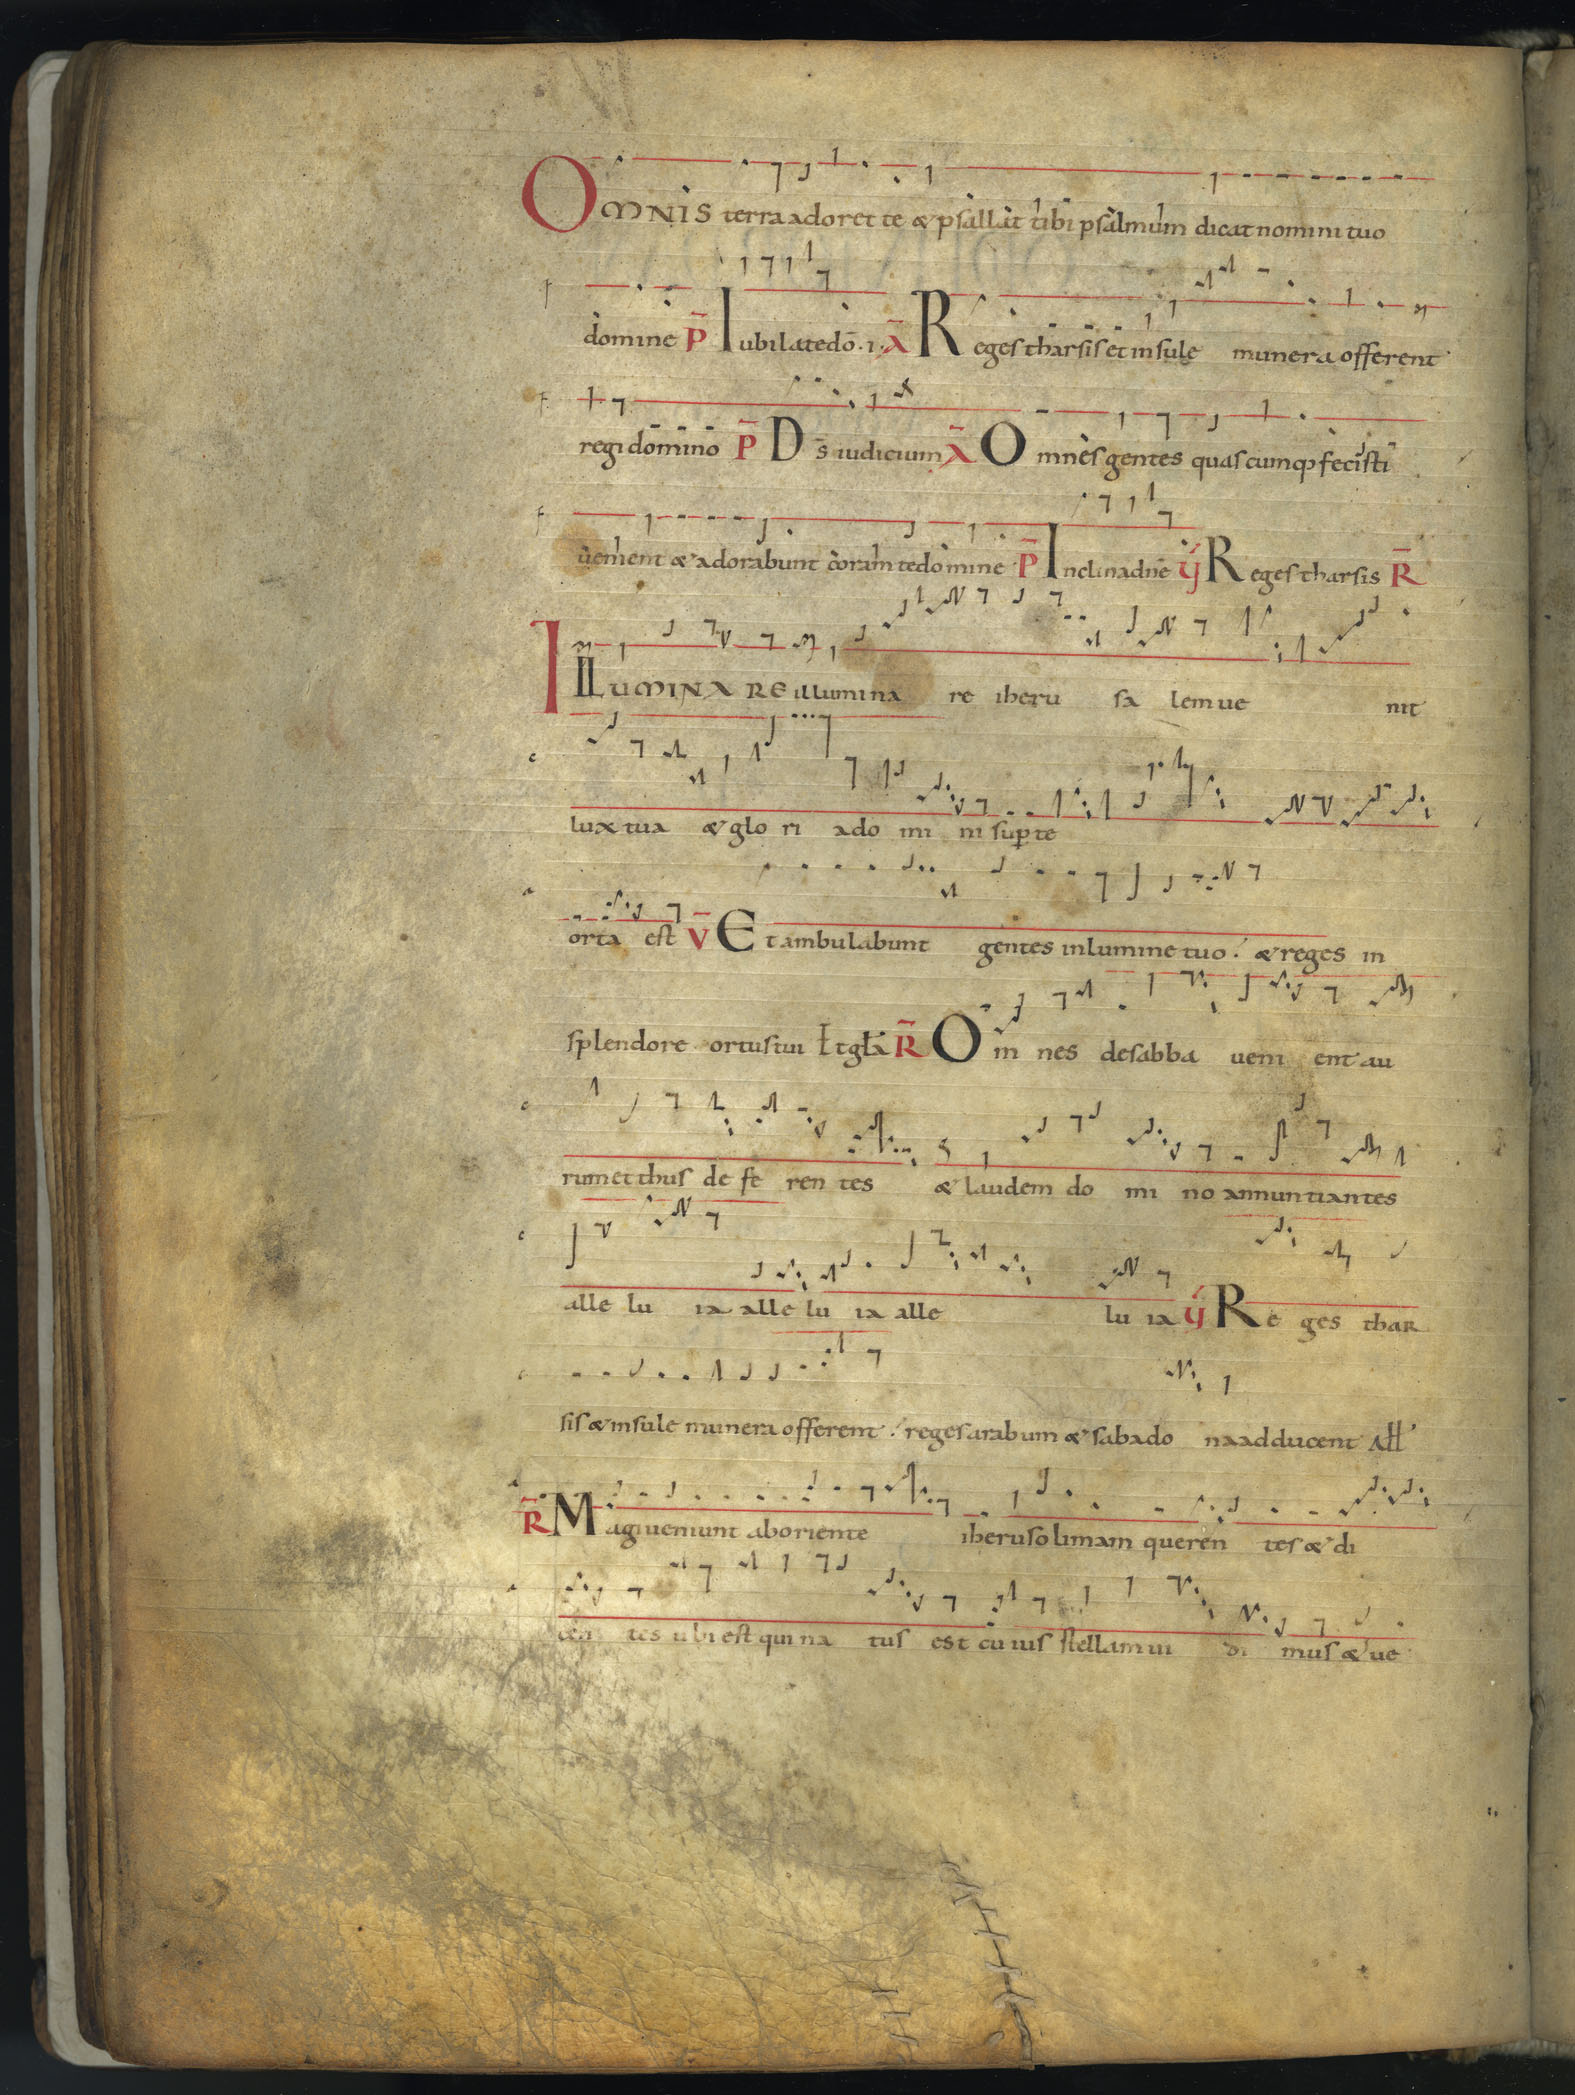 Omnis terra adoret te & psallat tibi psalmum dicat nomini tuo
domine P̄ Iubilate dō .i. Ā Reges tharsis et insule munera offerent
regi domino P̄ Ds̄ iudicium Ā Omnes gentes quascumq; fecisti
uenient & adorabunt coram te domine P̄ Inclina dn̄e ẏ Reges tharsis R̄
Illuminare illumina re iheru sa lem ue nit
lux tua & glo ri a do mi ni sup te
orta est V̄ Et ambulabunt gentes in lumine tuo. & reges in
splendore ortus tui Et gła R̄ Om nes de sabba ueni ent au
rum et thus de fe ren tes & laudem do mi no annuntiantes
alle lu ia alle lu ia alle lu ia ẏ Re ges thar
sis & insule munera offerent. reges arabum & saba do na adducent All'
R̄ Magi ueniunt ab oriente iherusolimam queren tes & di
cen tes ubi est qui na tus est cuius stellam ui di mus & ue